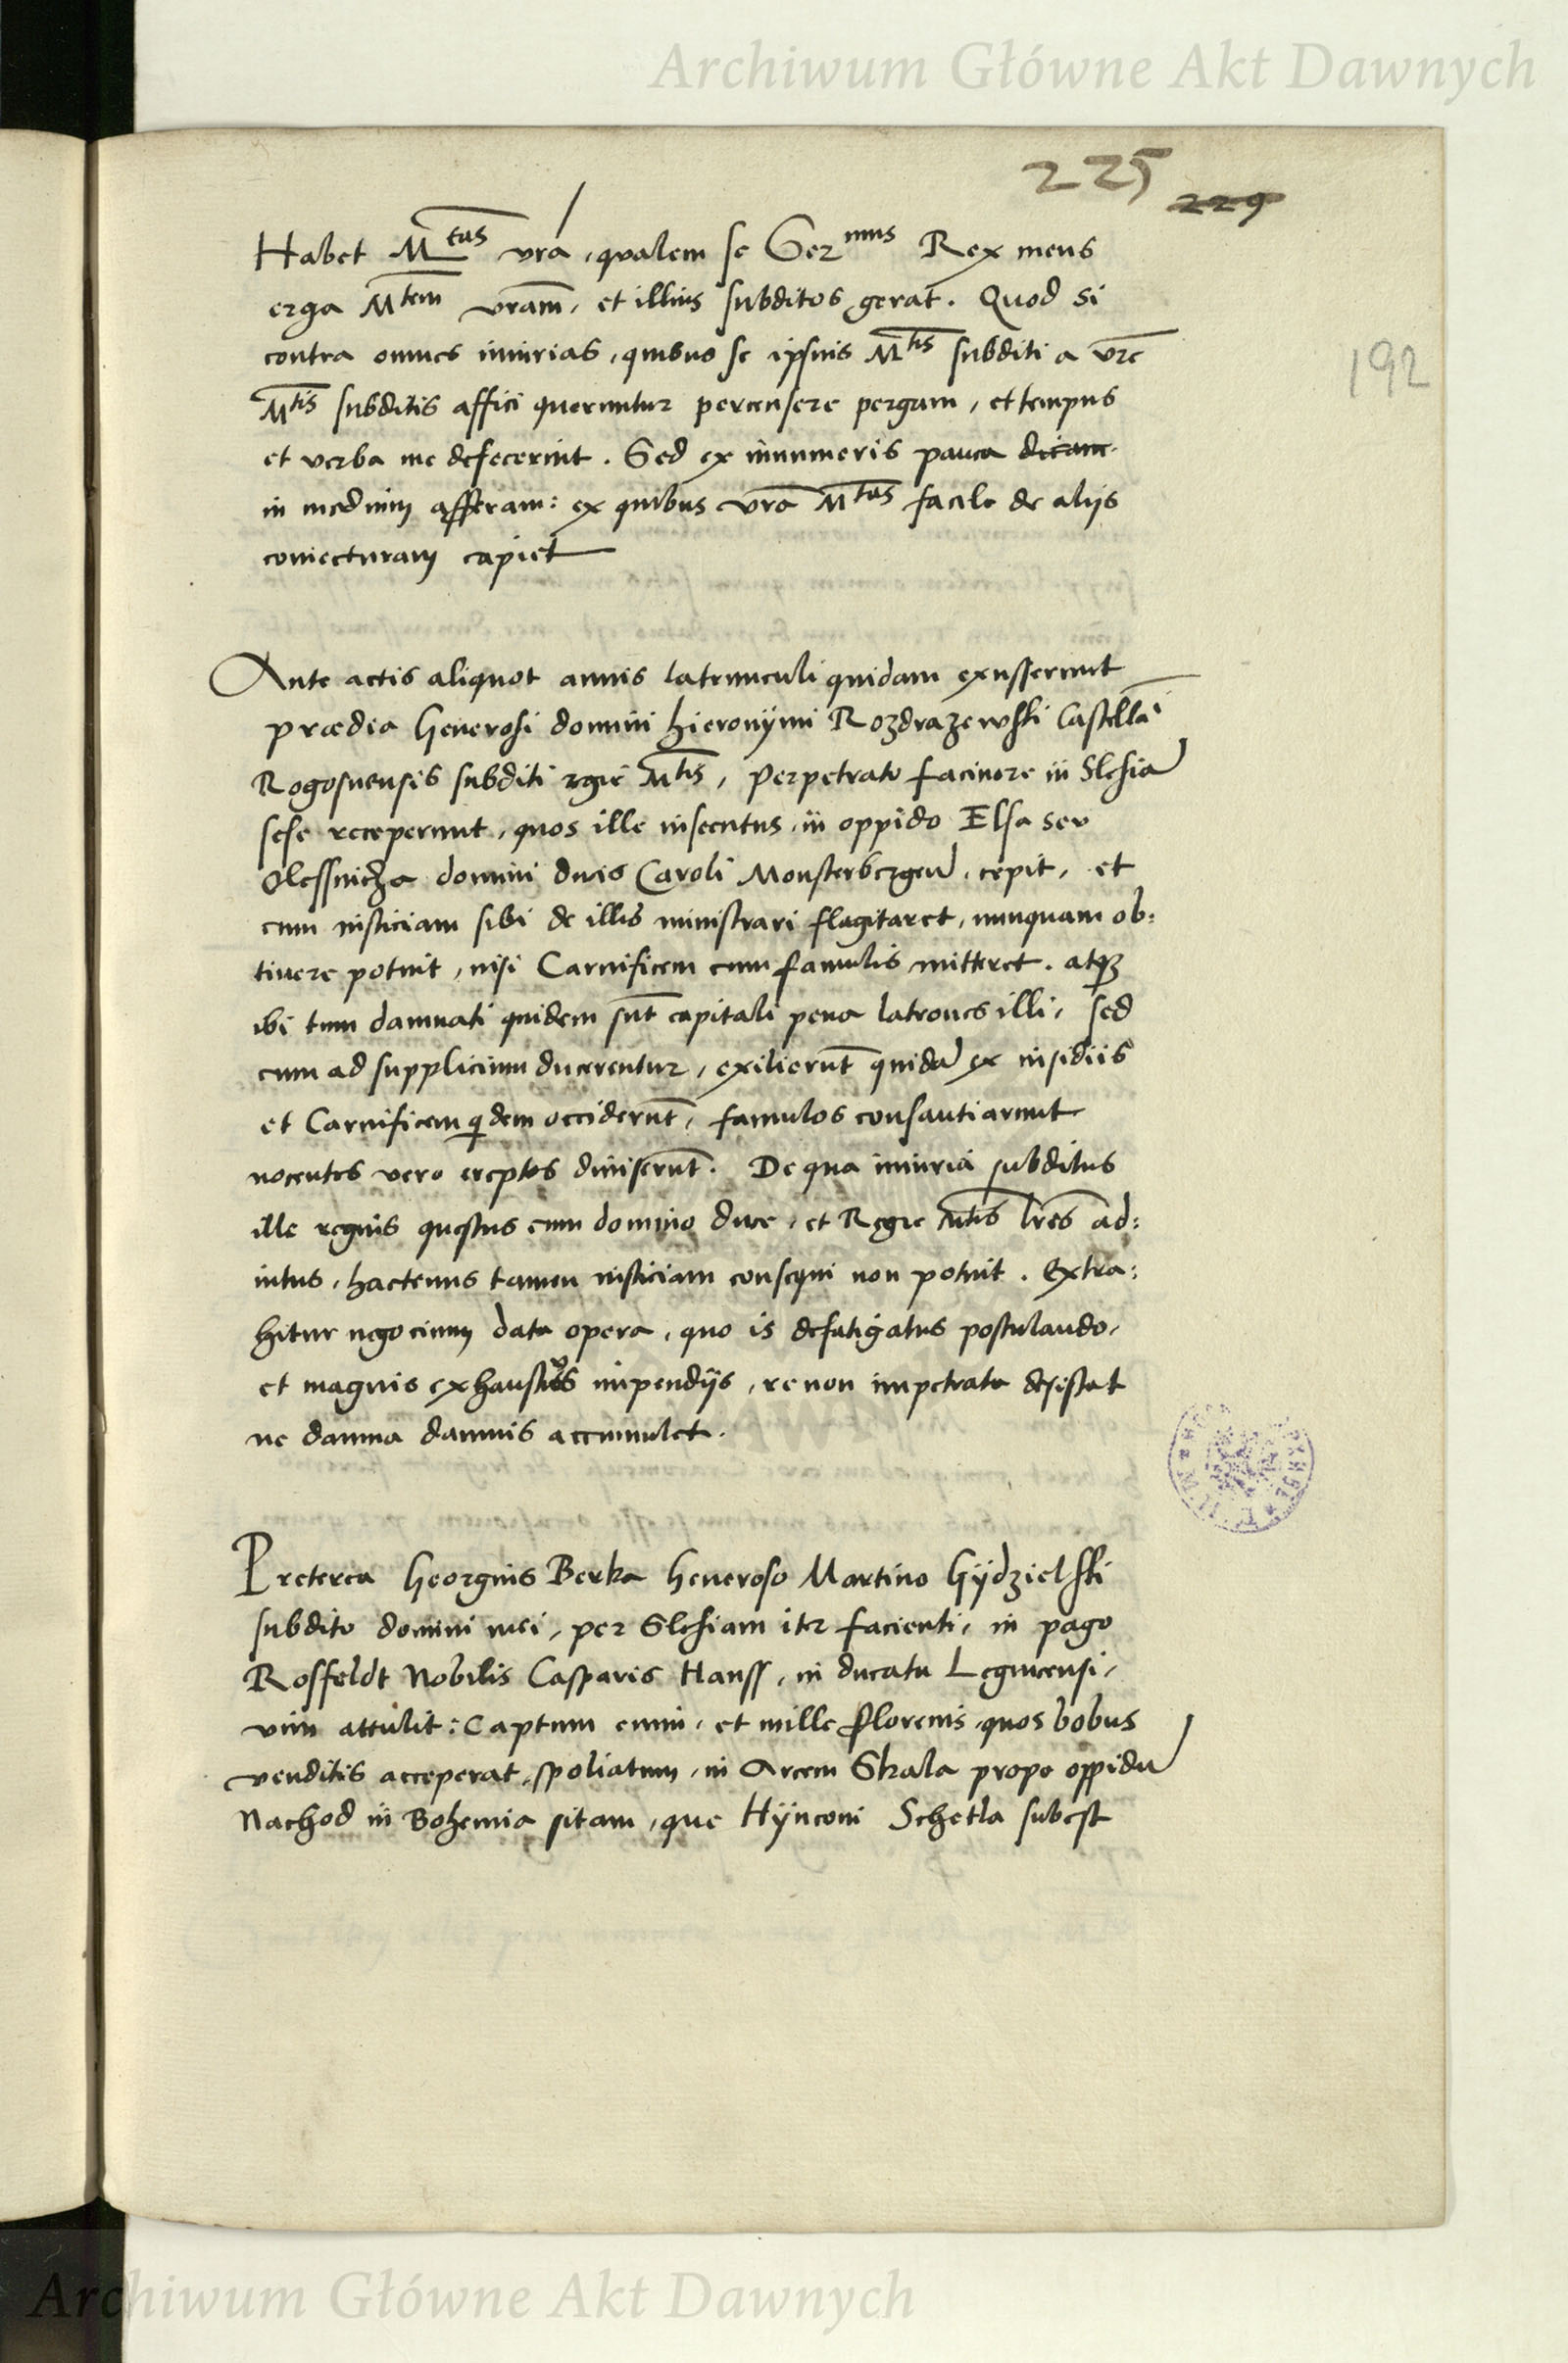 Archiwum Główne Akt Dawnych
225
229
192
Habet M^tas vra, qualem se Ser^mus Rex meus
erga M^tem vram, et illius subditos gerat. Quod si
contra omnes iniurias, quibus se ipsius M^tis subditi a vre
M^tis subditis affici queruntur percensere pergam, et tempus
et verba me defecerint. Sed ex innumeris pauca dicam
in medium afferam: ex quibus vra M^tas facile de alijs
coniecturam capiet
Ante actis aliquot annis latrunculi quidam exusserunt
prædia Generosi domini Hieronymi Rozdrazewski Castellai
Rogosnensis subditi rgie M^tis, perpetrato facinore in Slesia
sese receperunt, quos ille insecutus, in oppido Elsa seu
Olessnicza domini ducis Caroli Monsterbergen, cepit, et
cum iusticiam sibi de illis ministrari flagitaret, nunquam ob:
tinere potuit, nisi Carnificem cum famulis mitteret. atq3
ibi tum damnati quidem sunt capitali pena latrones illi, sed
cum ad supplicium ducerentur, exilierunt quida ex insidiis
et Carnificem qdem occiderunt, famulos consautiarunt
nocentes vero ereptos dimiserunt. De qua iniuria subditus
ille regius questus cum domino duce, et Regie Mtis lres ad:
iutus, hactenus tamen iusticiam consequi non potuit. Extra:
hitur negocium data opera, quo is defatigatus postulando,
et magnis exhaustus impendijs, re non impetrata desistat
ne damna damnis accumulet.
Preterea Georgius Berka Generoso Martino Gÿdzielski
subdito domini mei, per Slesiam iter facienti, in pago
Rosfeldt Nobilis Casparis Hanss, in ducatu Legnicensi,
vim attulit: Captum enim, et mille florenis, quos bobus
venditis acceperat, spoliatum, in Arcem Skala prope oppidu
Nachod in Bohemia sitam, que Hÿnconi Schetla subest
Archiwum Główne Akt Dawnych